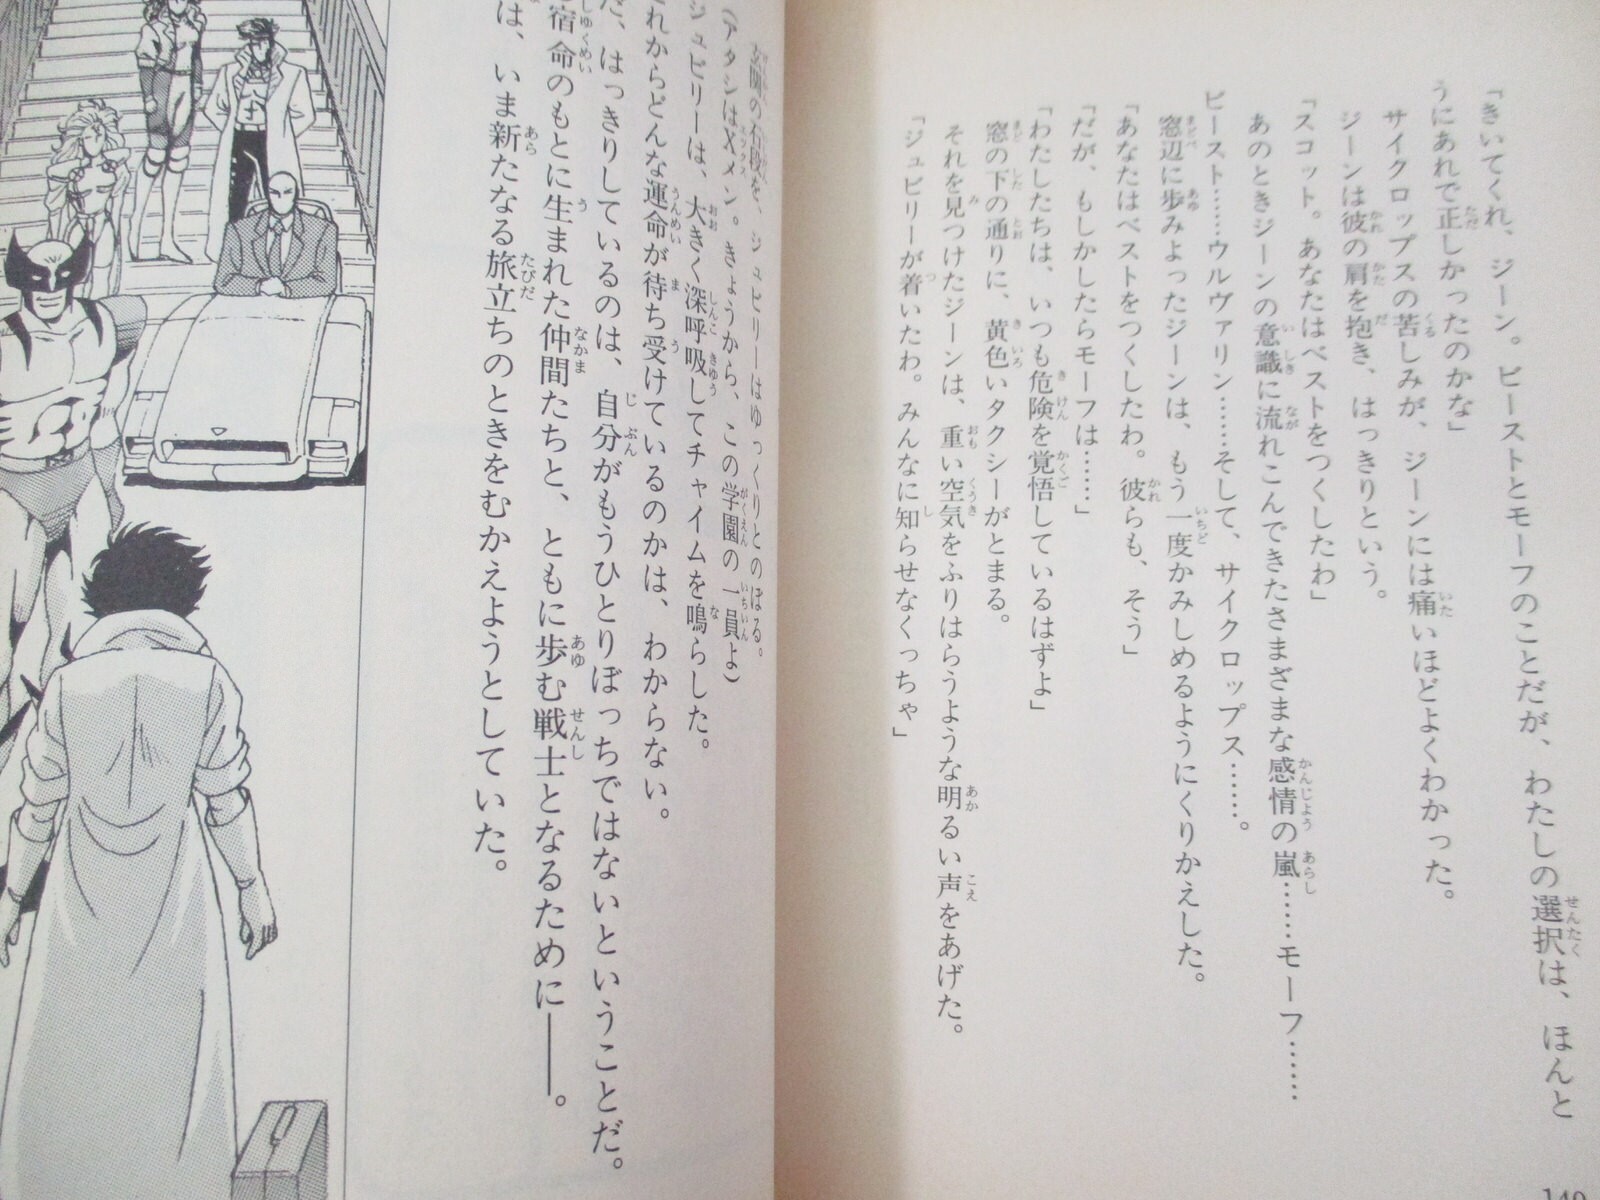 「きいてくれ、ジーン。ビーストとモーフのことだが、わたしの選択は、ほんと
うにあれで正しかったのかな」
サイクロップスの苦しみが、ジーンには痛いほどよくわかった。
ジーンは彼の肩を抱き、はっきりという。
「スコット。あなたはベストをつくしたわ」
あのときジーンの意識に流れこんできたさまざまな感情の嵐……モーフ……
ビースト……ウルヴァリン……そして、サイクロップス……。
窓辺に歩みよったジーンは、もう一度かみしめるようにくりかえした。
「あなたはベストをつくしたわ。彼らも、そう」
「だが、もしかしたらモーフは……」
「わたしたちは、いつも危険を覚悟しているはずよ」
窓の下の通りに、黄色いタクシーがとまる。
それを見つけたジーンは、重い空気をふりはらうような明るい声をあげた。
「ジュビリーが着いたわ。みんなに知らせなくっちゃ」
140
玄関の石段を、ジュビリーはゆっくりとのぼる。
(アタシはXメン。きょうから、この学園の一員よ)
ジュビリーは、大きく深呼吸してチャイムを鳴らした。
れからどんな運命が待ち受けているのかは、わからない。
だ、はっきりしているのは、自分がもうひとりぼっちではないということだ。
宿命のもとに生まれた仲間たちと、ともに歩む戦士となるために――。
は、いま新たなる旅立ちのときをむかえようとしていた。